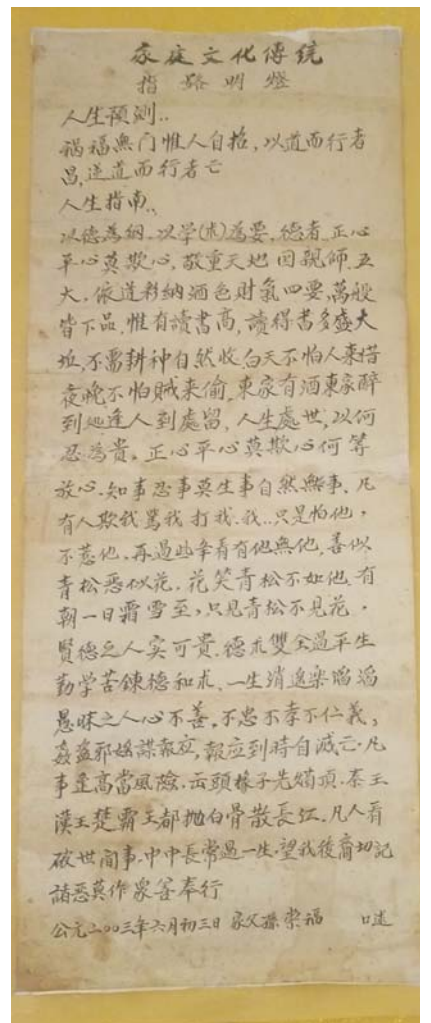 家庭文化傳统
指路明燈
人生預测..
祸福無门惟人自招,以道而行者
昌,逆道而行者亡
人生指南..
以德為纲.以学(朮)為要,德者.正心
平心莫欺心,敬重天地囯親師.五
大.依道彩纳酒色财氣四要,萬般
皆下品,惟有讀書高,讀得書多盛大
坵,不需耕种自然收,白天不怕人来借
夜晚不怕贼来偷,東家有酒東家醉
到处逢人到處留,人生處世,以何
忍為貴。正心平心莫欺心何等
放心.知事忍事莫生事自然無事.凡
有人欺我罵我打我.我..只是怕他,
不惹他.再過些年看有他無他.善似
青松悪似花.花笑青松不如他.有
朝一日霜雪至,只见青松不見花.
賢德之人实可貴.德朮雙全過平生
勤学苦鍊德和朮.一生消遙樂滔滔
愚昧之人心不善.不忠不孝不仁義;
姦盗邪婬謀報应,報应到時自滅亡.凡
事逢高當風險.出頭椽子先爛頂.秦王
漢王楚霸王都抛白骨散長江.凡人看
破世间事.中中長常過一生.望我後裔切記
諸悪莫作衆善奉行
公元二00三年六月初三日 家父孫崇福 口述